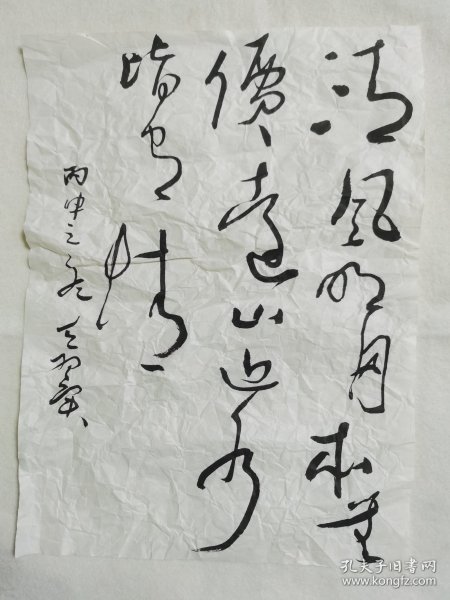 清风明月本无
價远山近水
皆有情
丙申之冬
孔夫子旧书网
www.kongfz.com